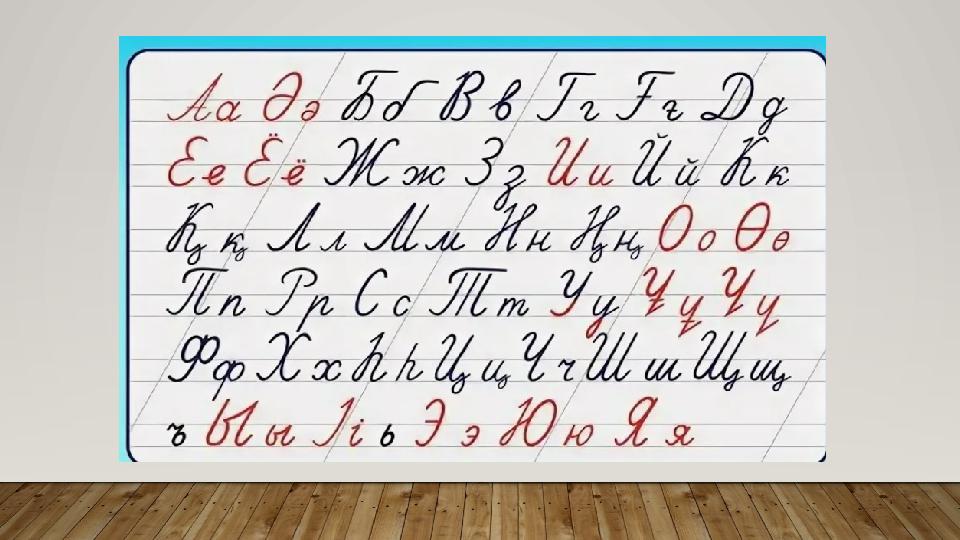 Аа Әә Бб Вв Гг Ғғ Дд
Ее Ёё Жж Зз Ии Йй Кк
Ққ Лл Мм Нн Ңң Оо Өө
Пп Рр Сс Тт Уу Ұұ Үү
Фф Хх Һһ Цц Чч Шш Щщ
ъ Ыы Іі ь Ээ Юю Яя